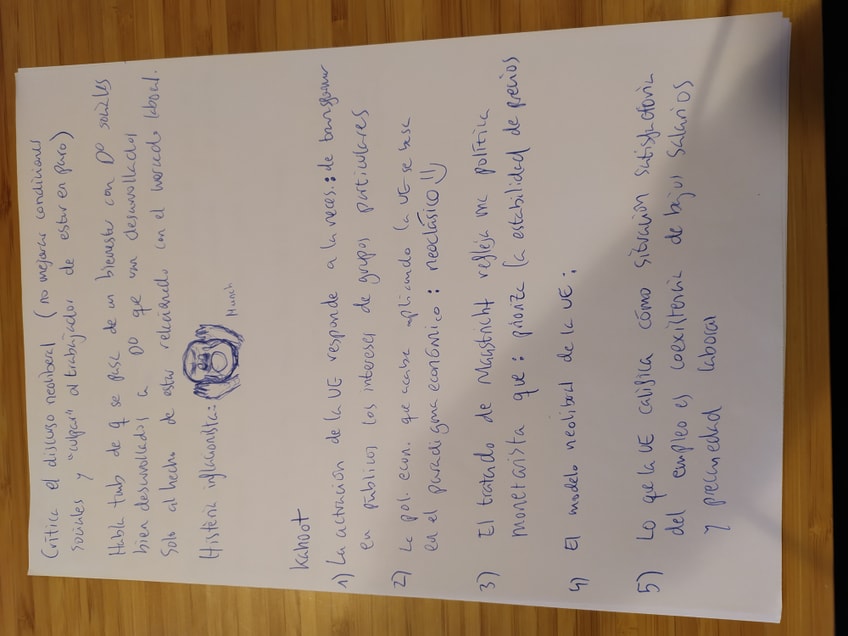 Crítica el discurso neoliberal (no mejorar condiciones
sociales y "culpar" al trabajador de estar en paro)
Habla tmb de q se pasa de un bienestar con Dº sociales
bien desarrollados a Dº que van desarrollados
solo al hecho de estar relacionado con el mercado laboral.
Histeria inflacionista:
Munch
Kahoot
1) La actuación de la UE responde a la neces.: de transformar
en públicos los intereses de grupos particulares
2) La pol. econ. que acaba aplicando la UE se basa
en el paradigma económico: neoclásico
3) El tratado de Maastricht refleja una política
monetarista que: prioriza la estabilidad de precios
4) El modelo neoliberal de la UE:
5) Lo que la UE califica cómo situación satisfactoria
del empleo es coexistencia de bajos salarios
y precariedad laboral